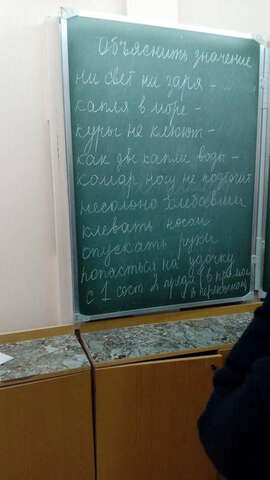 Объяснить значение
ни свет ни заря -
капля в море -
куры не клюют -
как две капли воды -
комар носу не подточит
несолоно хлебавши
клевать носом
опускать руки
попасться на удочку
с 1 сост 2 предл в прямом
в переносном